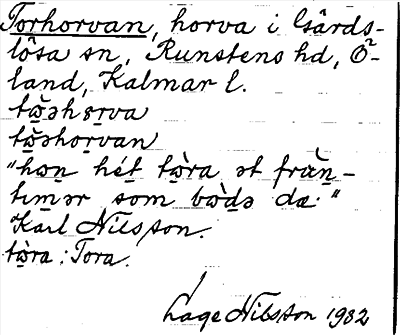 Torhorvan, horva i Gårds-
lösa sn, Runstens hd, Ö-
land, Kalmar l.
tὼəho̱rva
tὼəhorvan
"hən hét tὼra ət fràn̠-
tım̠ər som bὼdə dæ."
Karl Nilsson.
tὼra: Tora.
Lage Nilsson 1932